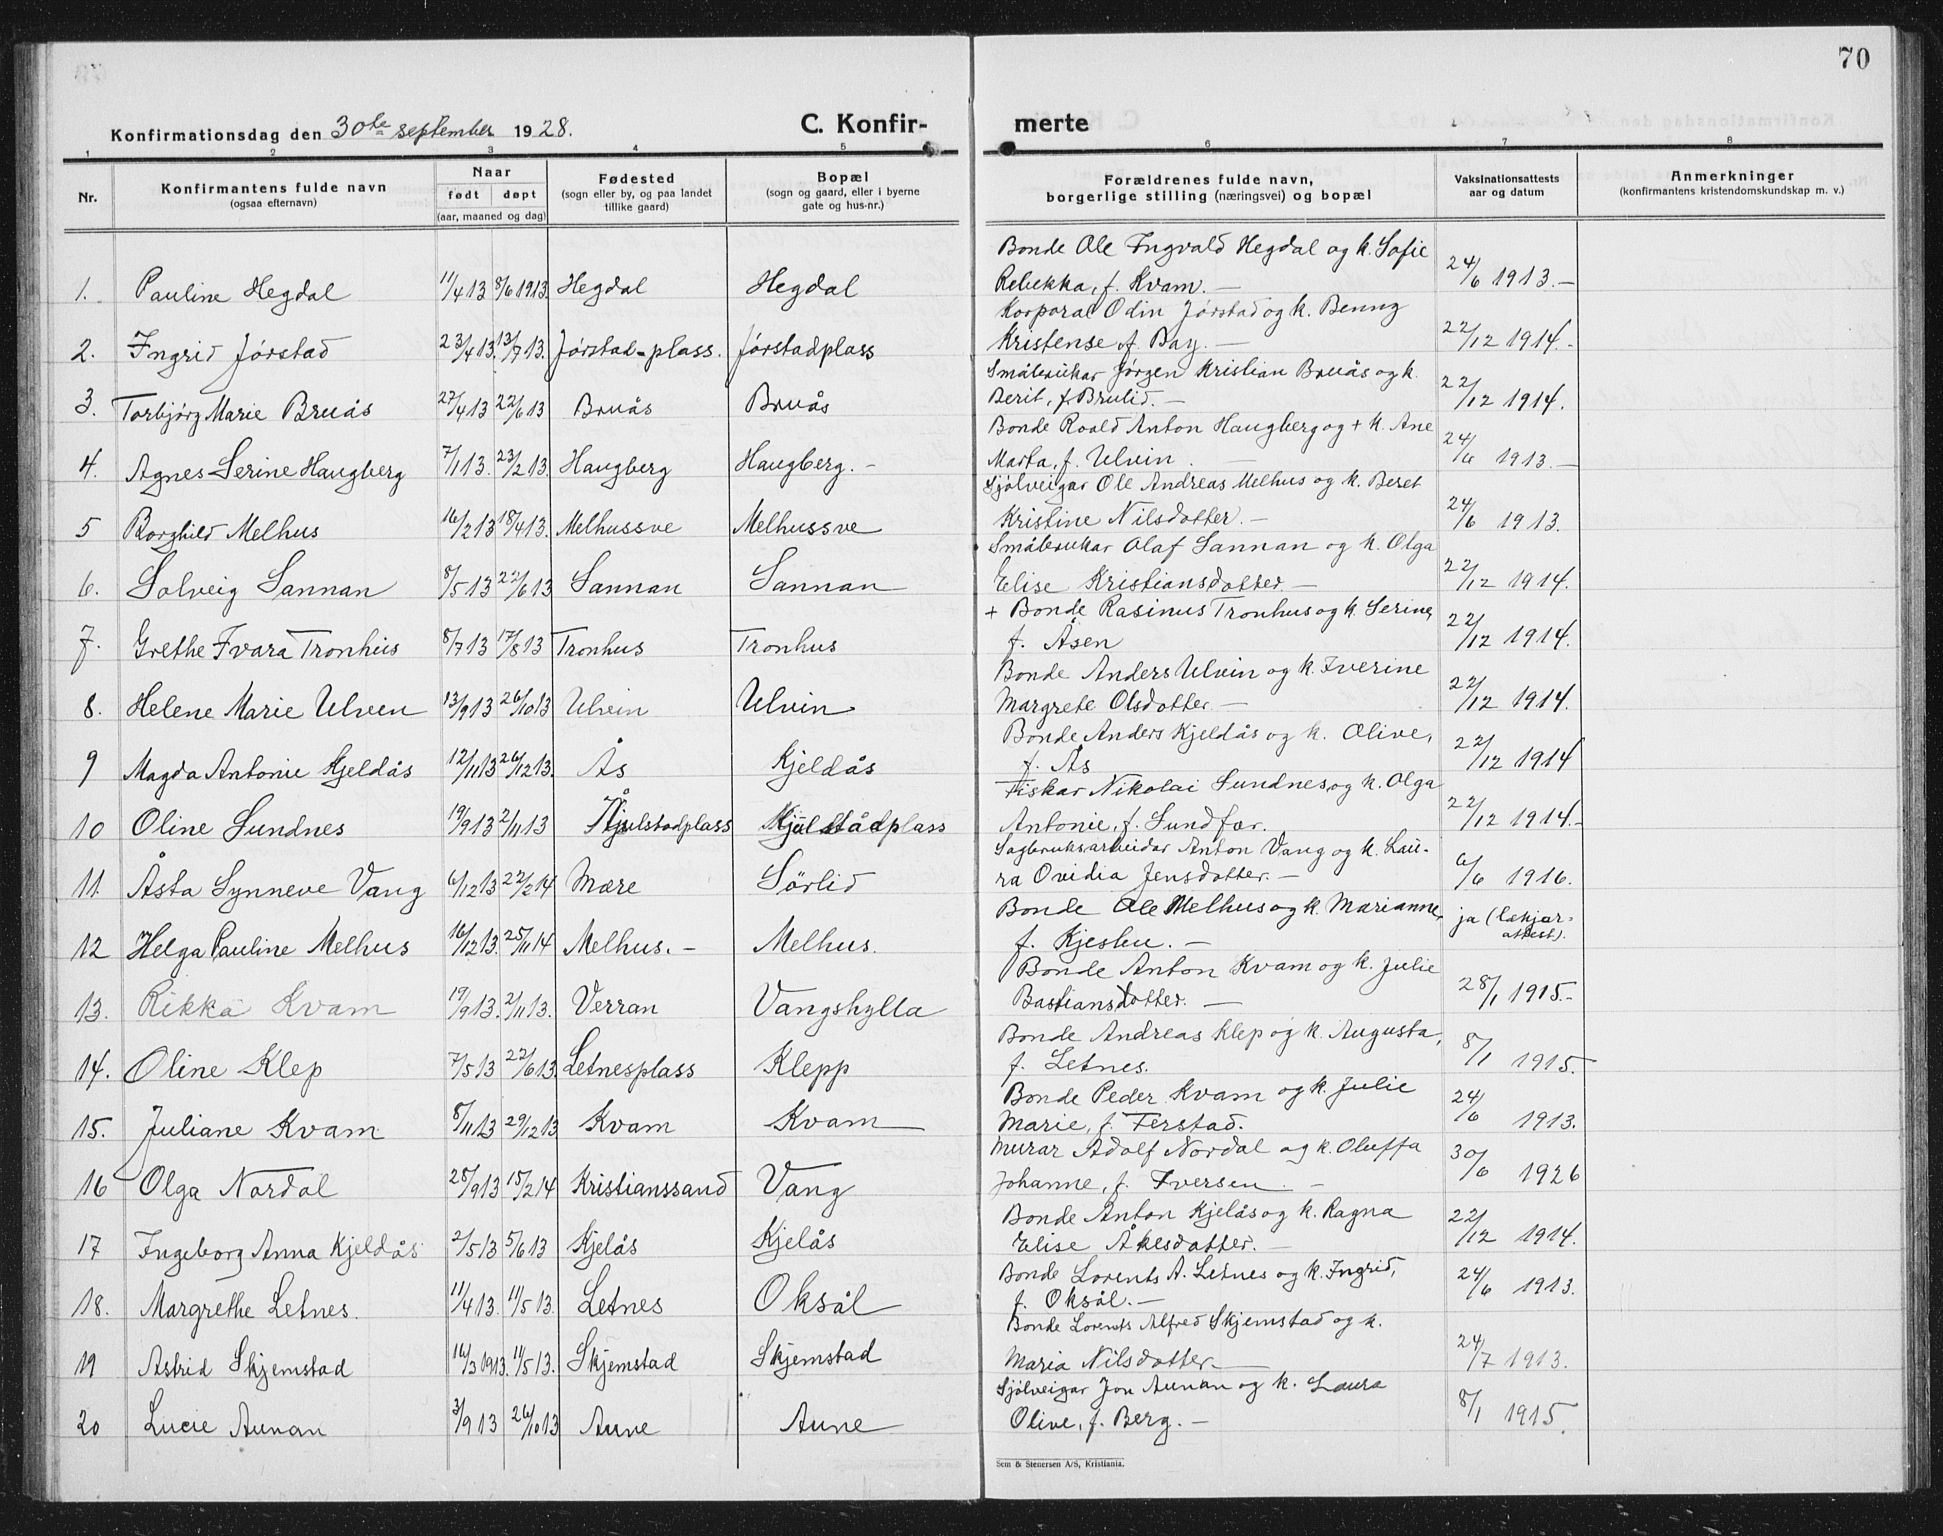 70
Konfirmationsdag den 30te september 1928. C. Konfir- merte
1 2 3 4 5 6 7 8
Nr. Konfirmantens fulde navn (ogsaa efternavn) Naar født døpt (aar, maaned og dag) Fødested (sogn eller by, og paa landet tillike gaard) Bopæl (sogn og gaard, eller i byerne gate og hus-nr.) Forældrenes fulde navn, borgerlige stilling (næringsvei) og bopæl Vaksinationsattests aar og datum Anmerkninger (konfirmantens kristendomskundskap m. v.)
1. Pauline Hegdal 11/4 13 8/6 1913. Hegdal Hegdal Bonde Ole Ingvald Hegdal og k. Sofie
Rebekka, f. Kvam. — 24/6 1913. —
2. Ingrid Jørstad 23/4 13. 13/7 13. Jørstad-plass. Jørstadplass Korporal Odin Jørstad og k. Benny
Kristense f. Bay. — 22/12 1914. -
3. Torbjørg Marie Bruås 27/4 13 22/6 13 Bruås Bruås Småbrukar Jørgen Kristian Bruås og k.
Berit, f. Brulid. — 22/12 1914.
4. Agnes Serine Haugberg 7/1 13. 23/2 13. Haugberg Haugberg. - Bonde Roald Anton Haugberg og + k. Ane
Marta, f. Ulvin. — 24/6 1913. —
5 Borghild Melhus 16/2 13 18/4 13. Melhussve Melhussve Sjølveigar Ole Andreas Melhus og k. Beret
Kristine Nilsdotter. — 24/6 1913.
6. Solveig Sannan 8/5 13 22/6 13 Sannan Sannan Småbrukar Olaf Sannan og k. Olga
Elise Kristiansdotter — 22/12 1914.
7. Grethe Ivara Tronhus 8/7 13 17/8 13 Tronhus Tronhus + Bonde Rasinus Tronhus og k. Serine,
f. Åsen 22/12 1914.
8. Helene Marie Ulven 13/9 13 26/10 13 Ulvin Ulvin Bonde Anders Ulvin og k. Iverine
Margrete Olsdotter — 22/12 1914.
9 Magda Antonie Kjeldås 12/11 13 26/12 13. Ås Kjeldås Bonde Anders Kjeldås og k. Olive,
f. Ås 22/12 1914
10 Oline Sundnes 19/9 13 2/11 13 Kjulstadplass Fiskar Nikolai Sundnes og k. Olga
Antonie, f. Sundfær. 22/12 1914. -
11. Åsta Synneve Vang 6/12 13 22/2 14 Mære Sørlid Sagbruksarbeidar Anton Vang og k. Lau-
ra Ovidia Jensdotter. — 6/6 1916.
12 Helga Pauline Melhus 16/12 13. 25/11 14 Melhus. - Melhus. Bonde Ole Melhus og k. Marianne,
f. Kjesbu. — ja (lækjar-
attest).
13. Rikka Kvam 19/9 13. 2/11 13. Verran Vangshylla Bonde Anton Kvam og k. Julie
Bastiansdotter. — 28/1 1915. -
14. Oline Klep 7/5 13 22/6 13. Letnesplass Klepp Bonde Andreas Klep og k. Augusta,
f. Letnes. 8/1 1915.
15. Juliane Kvam 8/11 13 29/12 13 Kvam Kvam Bonde Peder Kvam og k. Julie
Marie, f. Ferstad. 24/6 1913.
16 Olga Nordal 28/9 13 15/2 14 Kristianssand Vang Murar Adolf Nordal og k. Oluffa
Johanne, f. Iversen. — 30/6 1926
17 Ingeborg Anna Kjeldås 2/5 13 5/6 13 Kjelås Kjelås Bonde Anton Kjelås og k. Ragna
Elise Åkesdotter. — 22/12 1914.
18. Margrethe Letnes. 11/4 13. 11/5 13. Letnes Oksål Bonde Lorents A. Letnes og k. Ingrid,
f. Oksål. — 24/6 1913.
19 Astrid Skjemstad 16/3 1913. 11/5 13. Skjemstad Skjemstad Bonde Lorents Alfred Skjemstad og k.
Maria Nilsdotter — 24/7 1913.
20 Lucie Aunan 3/9 13 26/10 13 Aune Aune Sjølveigar Jon Aunan og k. Laura
Olive, f. Berg. — 8/1 1915.
Sem & Stenersen A/S, Kristiania.